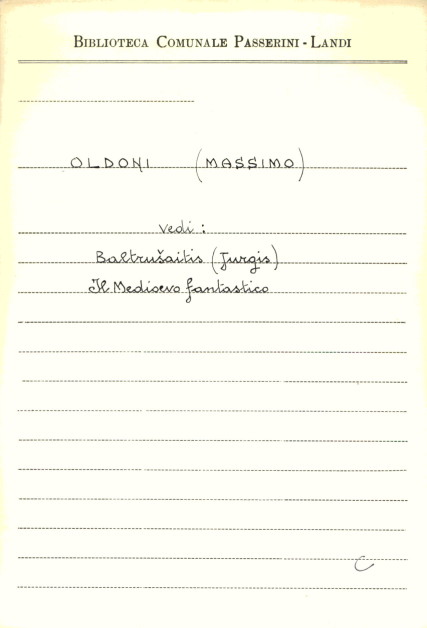 BIBLIOTECA COMUNALE PASSERINI - LANDI
OLDONI (MASSIMO)
vedi :
Baltrušaitis (Jurgis)
Il Medioevo fantastico
C